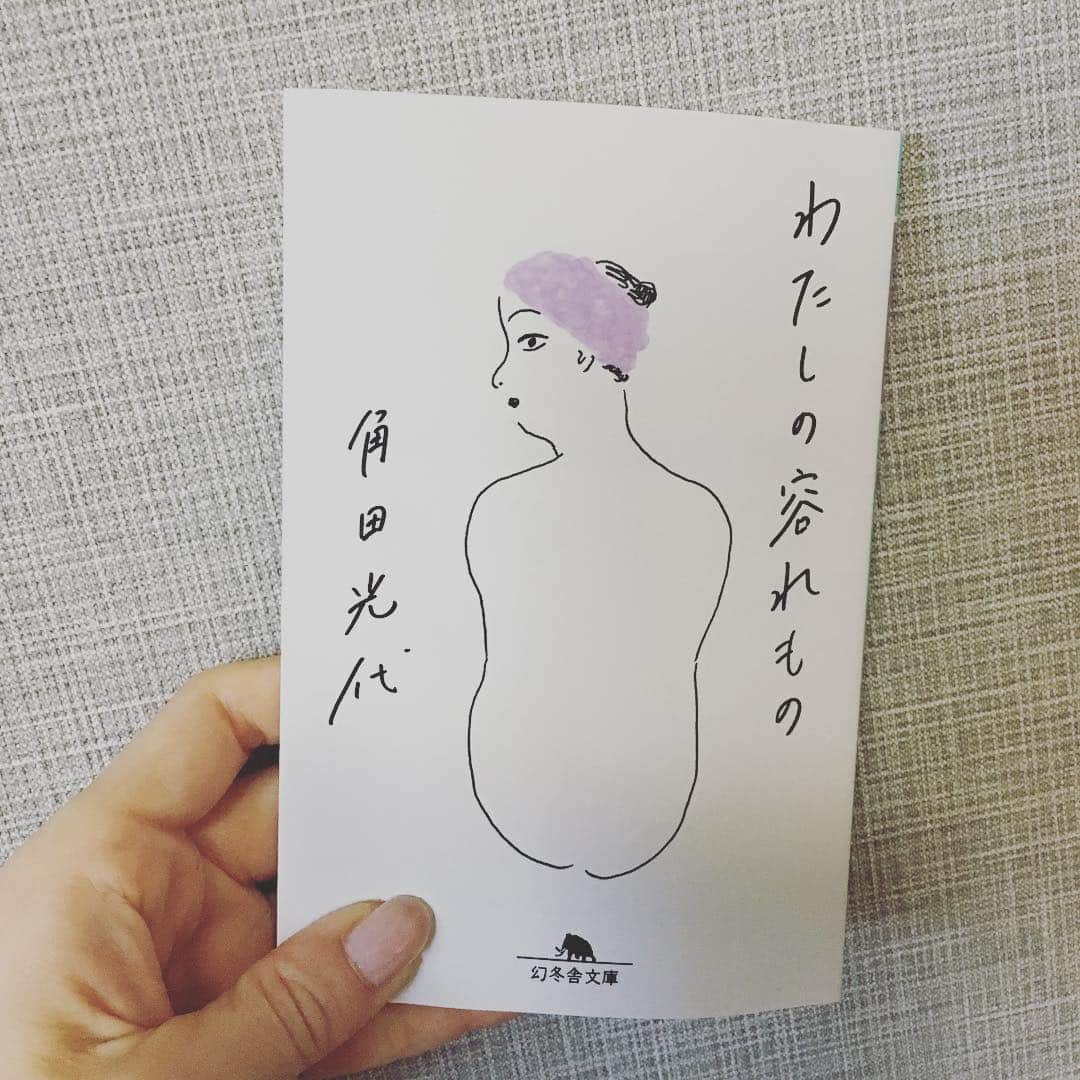 わたしの容れもの
角田光代
幻冬舎文庫